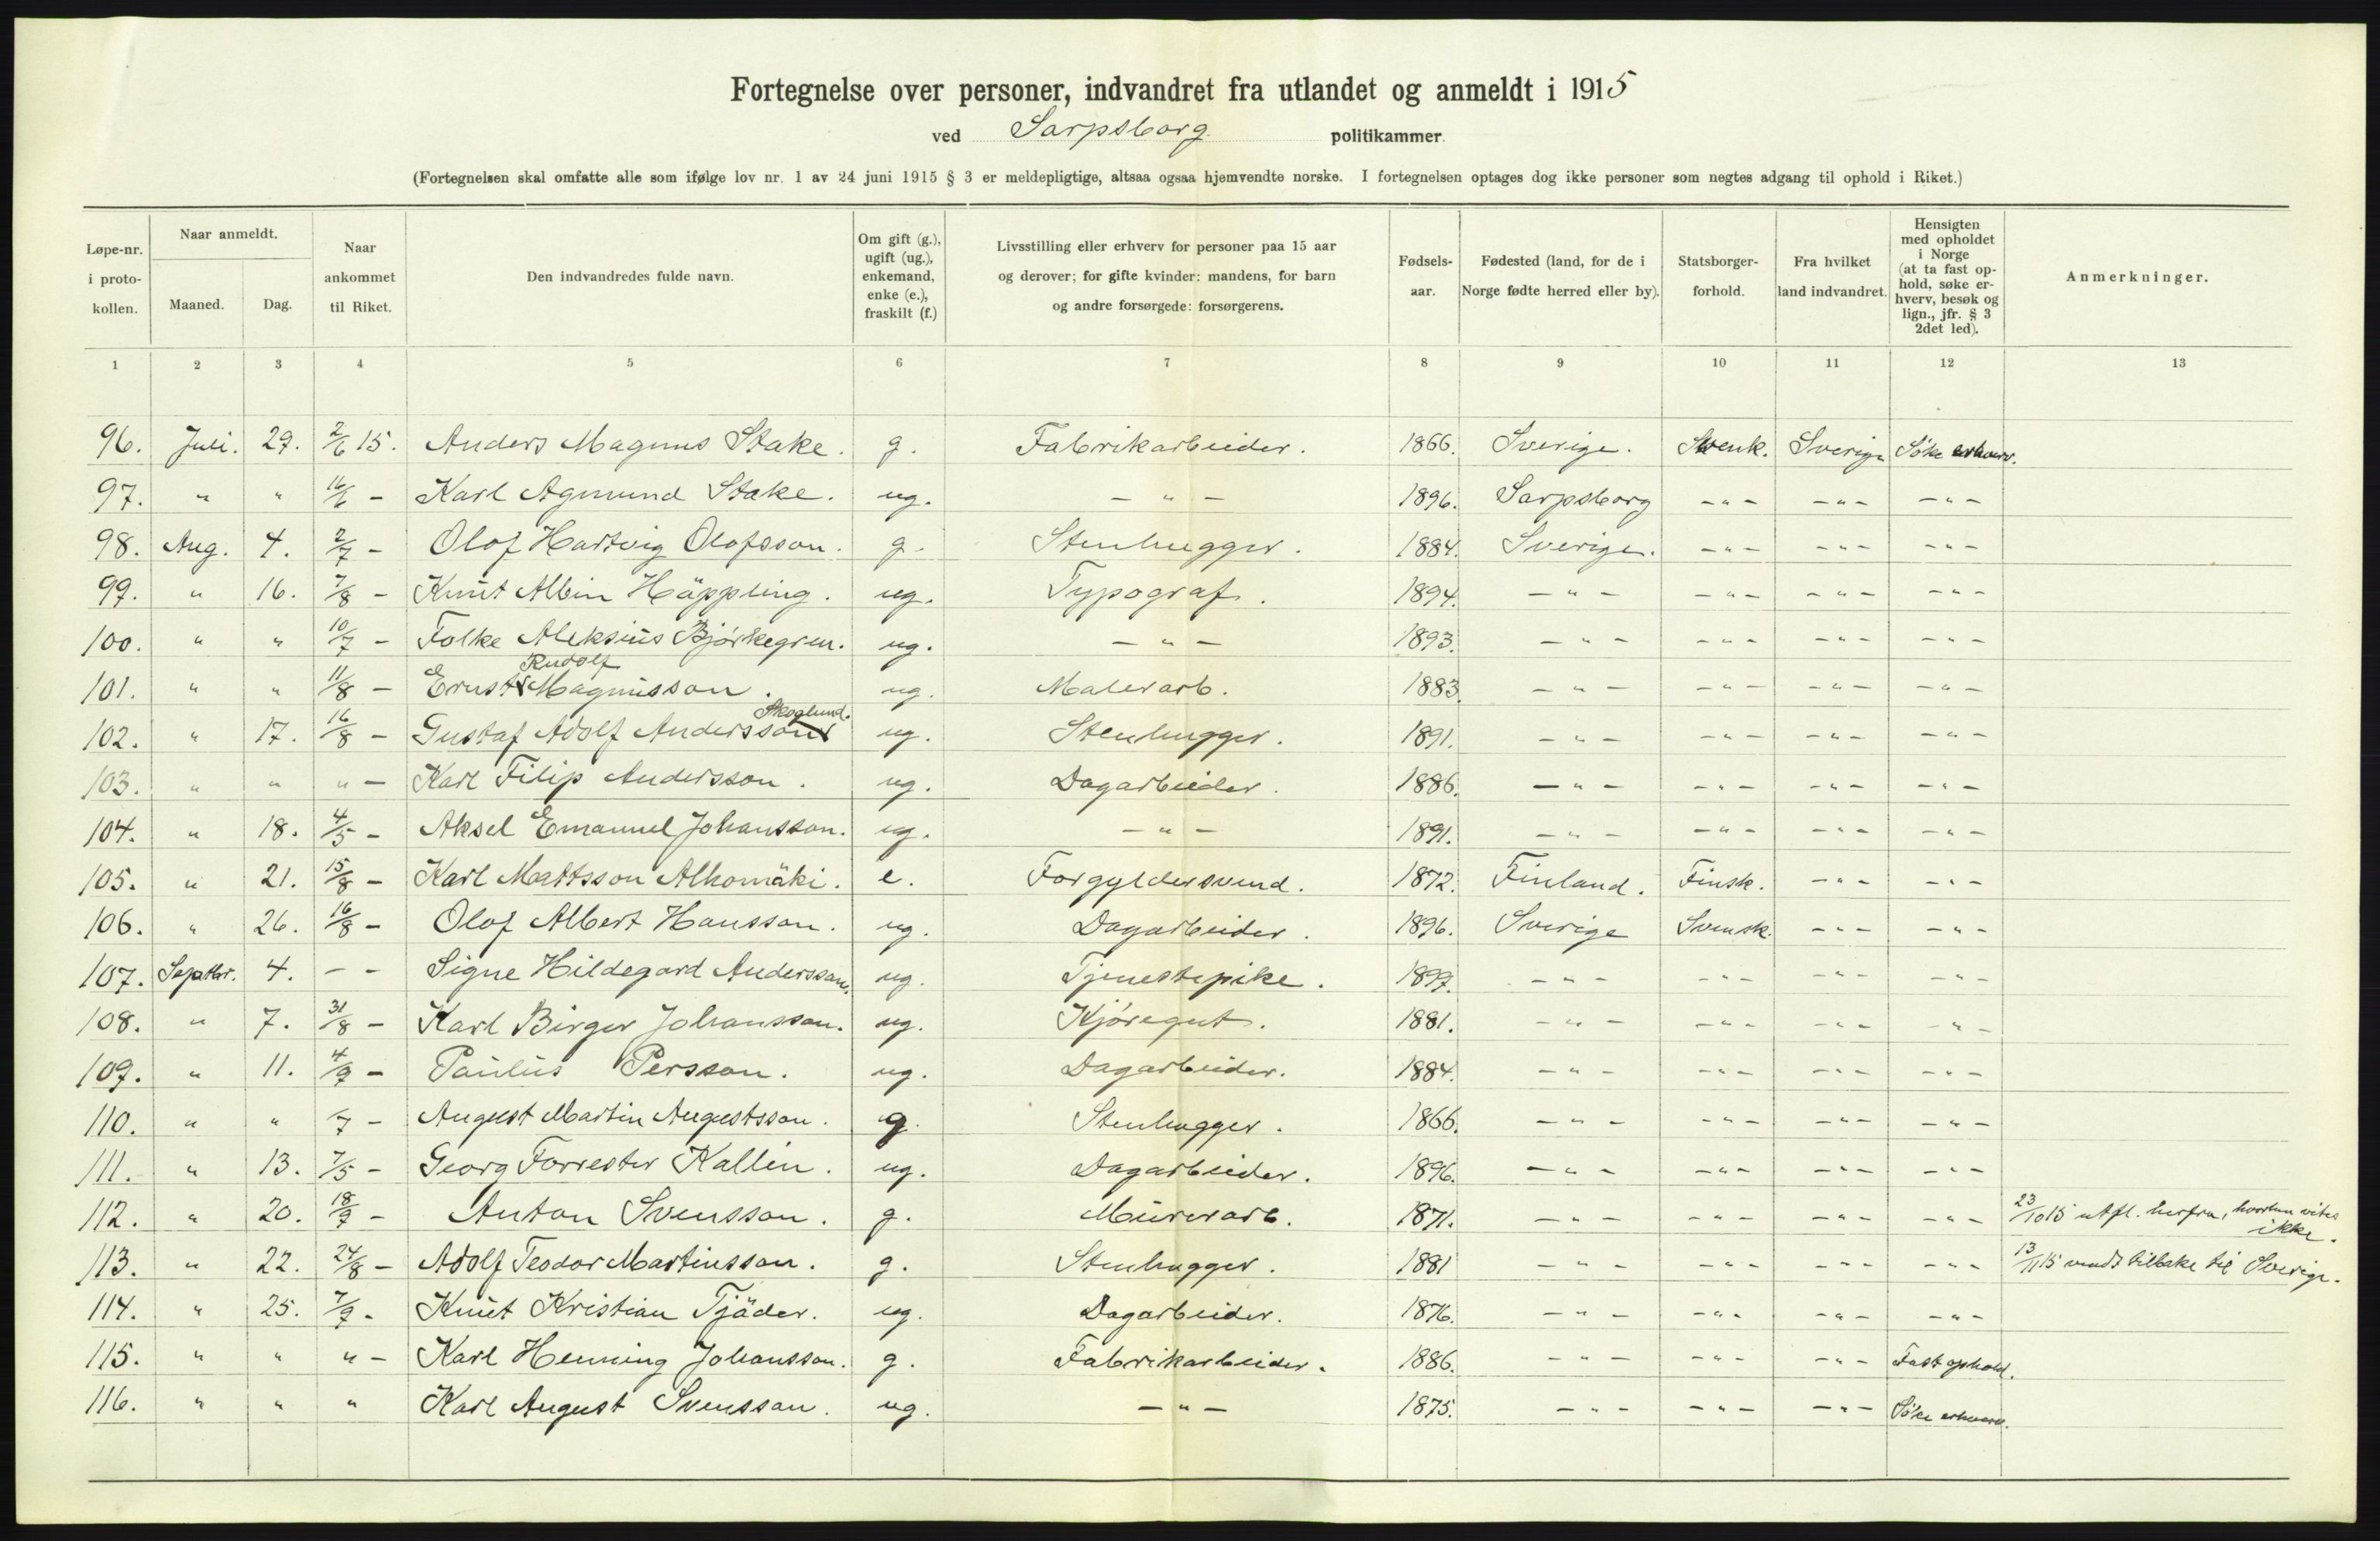 Fortegnelse over personer, indvandret fra utlandet og anmeldt i 1915
ved Sarpsborg politikammer.
(Fortegnelsen skal omfatte alle som ifølge lov nr. 1 av 24 juni 1915 § 3 er meldepligtige, altsaa ogsaa hjemvendte norske. I fortegnelsen optages dog ikke personer som negtes adgang til ophold i Riket.)
Løpe-nr. i proto-kollen. | Naar anmeldt. Maaned. Dag. | Naar ankommet til Riket. | Den indvandredes fulde navn. | Om gift (g.), ugift (ug.), enkemand, enke (e.), fraskilt (f.) | Livsstilling eller erhverv for personer paa 15 aar og derover; for gifte kvinder: mandens, for barn og andre forsørgede: forsørgerens. | Fødsels-aar. | Fødested (land, for de i Norge fødte herred eller by). | Statsborger-forhold. | Fra hvilket land indvandret. | Hensigten med opholdet i Norge (at ta fast op-hold, søke er-hverv, besøk og lign., jfr. § 3 2det led). | Anmerkninger.
1 2 3 4 5 6 7 8 9 10 11 12 13
96. Juli. 29. 2/6 15. Anders Magnus Stake. g. Fabrikarbeider. 1866. Sverige. Svensk. Sverige Söke erhverv.
97. " " 16/6 - Karl Agmund Stake. ug. - " - 1896. Sarpsborg - " - - " - - " -
98. Aug. 4. 2/7 - Olof Hartvig Olofsson. g. Stenhugger. 1884. Sverige. - " - - " - - " -
99. " 16. 7/8 - Knut Albin Häppling. ug. Typograf. 1894. - " - - " - - " - - " -
100. " " 10/7 - Folke Aleksius Björkegren. ug. - " - 1893. - " - - " - - " - - " -
101. " " 11/8 - Ernst Rudolf Magnusson. ug. Malerarb. 1883. - " - - " - - " - - " -
102. " 17. 16/8 - Gustaf Adolf Andersson Skoglund. ug. Stenhugger. 1891. - " - - " - - " - - " -
103. " " " - Karl Filip Andersson. ug. Dagarbeider. 1886. - " - - " - - " - - " -
104. " 18. 4/5 - Aksel Emanuel Johansson. ug. - " - 1891. - " - - " - - " - - " -
105. " 21. 15/8 - Karl Mattsson Alhomäki. e. Forgyldersvend. 1872. Finland. Finsk. - " - - " -
106. " 26. 16/8 - Olof Albert Hansson. ug. Dagarbeider. 1896. Sverige Svensk. - " - - " -
107. Septbr. 4. - - Signe Hildegard Andersson. ug. Tjenestepike. 1897. - " - - " - - " - - " -
108. " 7. 31/8 - Karl Birger Johansson. ug. Kjöregut. 1881. - " - - " - - " - - " -
109. " 11. 4/9 - Paulus Persson. ug. Dagarbeider. 1884. - " - - " - - " - - " -
110. " " /7 - August Martin Augustsson. g. Stenhugger. 1866. - " - - " - - " - - " -
111. " 13. 7/5 - Georg Forrester Kallin. ug. Dagarbeider. 1896. - " - - " - - " - - " -
112. " 20. 18/9 - Anton Svensson. g. Murerarb. 1871. - " - - " - - " - - " - 23/10 15 utfl. herfra, hvorhen vites ikke.
113. " 22. 24/8 - Adolf Teodor Martinsson. g. Stenhugger. 1881 - " - - " - - " - - " - 13/11 15 vendt tilbake til Sverige.
114. " 25. 7/9 - Knut Kristian Tjäder. ug. Dagarbeider. 1876. - " - - " - - " - - " -
115. " " " - Karl Henning Johansson. g. Fabrikarbeider. 1886. - " - - " - - " - Fast ophold.
116. " " " Karl August Svensson. ug. - " - 1875. - " - - " - - " - Söke erhverv.